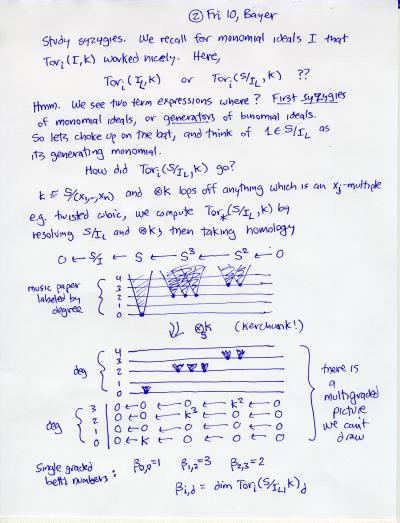 ② Fri 10, Bayer
Study syzygies. We recall for monomial ideals I that
Torᵢ(I,k) worked nicely. Here,
Torᵢ(I_L,k) or Torᵢ(S/I_L,k) ??
Hmm. We see two term expressions where? First syzygies
of monomial ideals, or generators of binomial ideals.
So lets choke up on the bat, and think of 1∈S/I_L as
its generating monomial.
How did Torᵢ(S/I_L,k) go?
k ≅ S/(x₁,..,xₙ) and ⊗k lops off anything which is an xⱼ-multiple
e.g. twisted cubic, we compute Tor_*(S/I_L,k) by
resolving S/I_L and ⊗k, then taking homology
0 ← S/I ← S ← S³ ← S² ← 0
music paper
labeled by
degree
4
3
2
1
0
⇓ ⊗_S k (kerchunk!)
deg
4
3
2
1
0
deg
3 0 ← 0 ← 0 ← k² ← 0
2 0 ← 0 ← k³ ← 0 ← 0
1 0 ← 0 ← 0 ← 0 ← 0
0 0 ← k ← 0 ← 0 ← 0
there is
a
multigraded
picture
we can't
draw
Single graded
betti numbers: β₀,₀=1 β₁,₂=3 β₂,₃=2
β_{i,d} = dim Torᵢ(S/I_L,k)_d